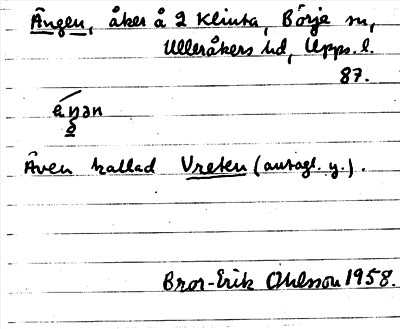 Ängen, åker å 2 Klinta, Börje sn,
Ulleråkers hd, Upps. l.
87.
Även kallad Vreten (antagl. y.).
Bror-Erik Ohlsson 1958.